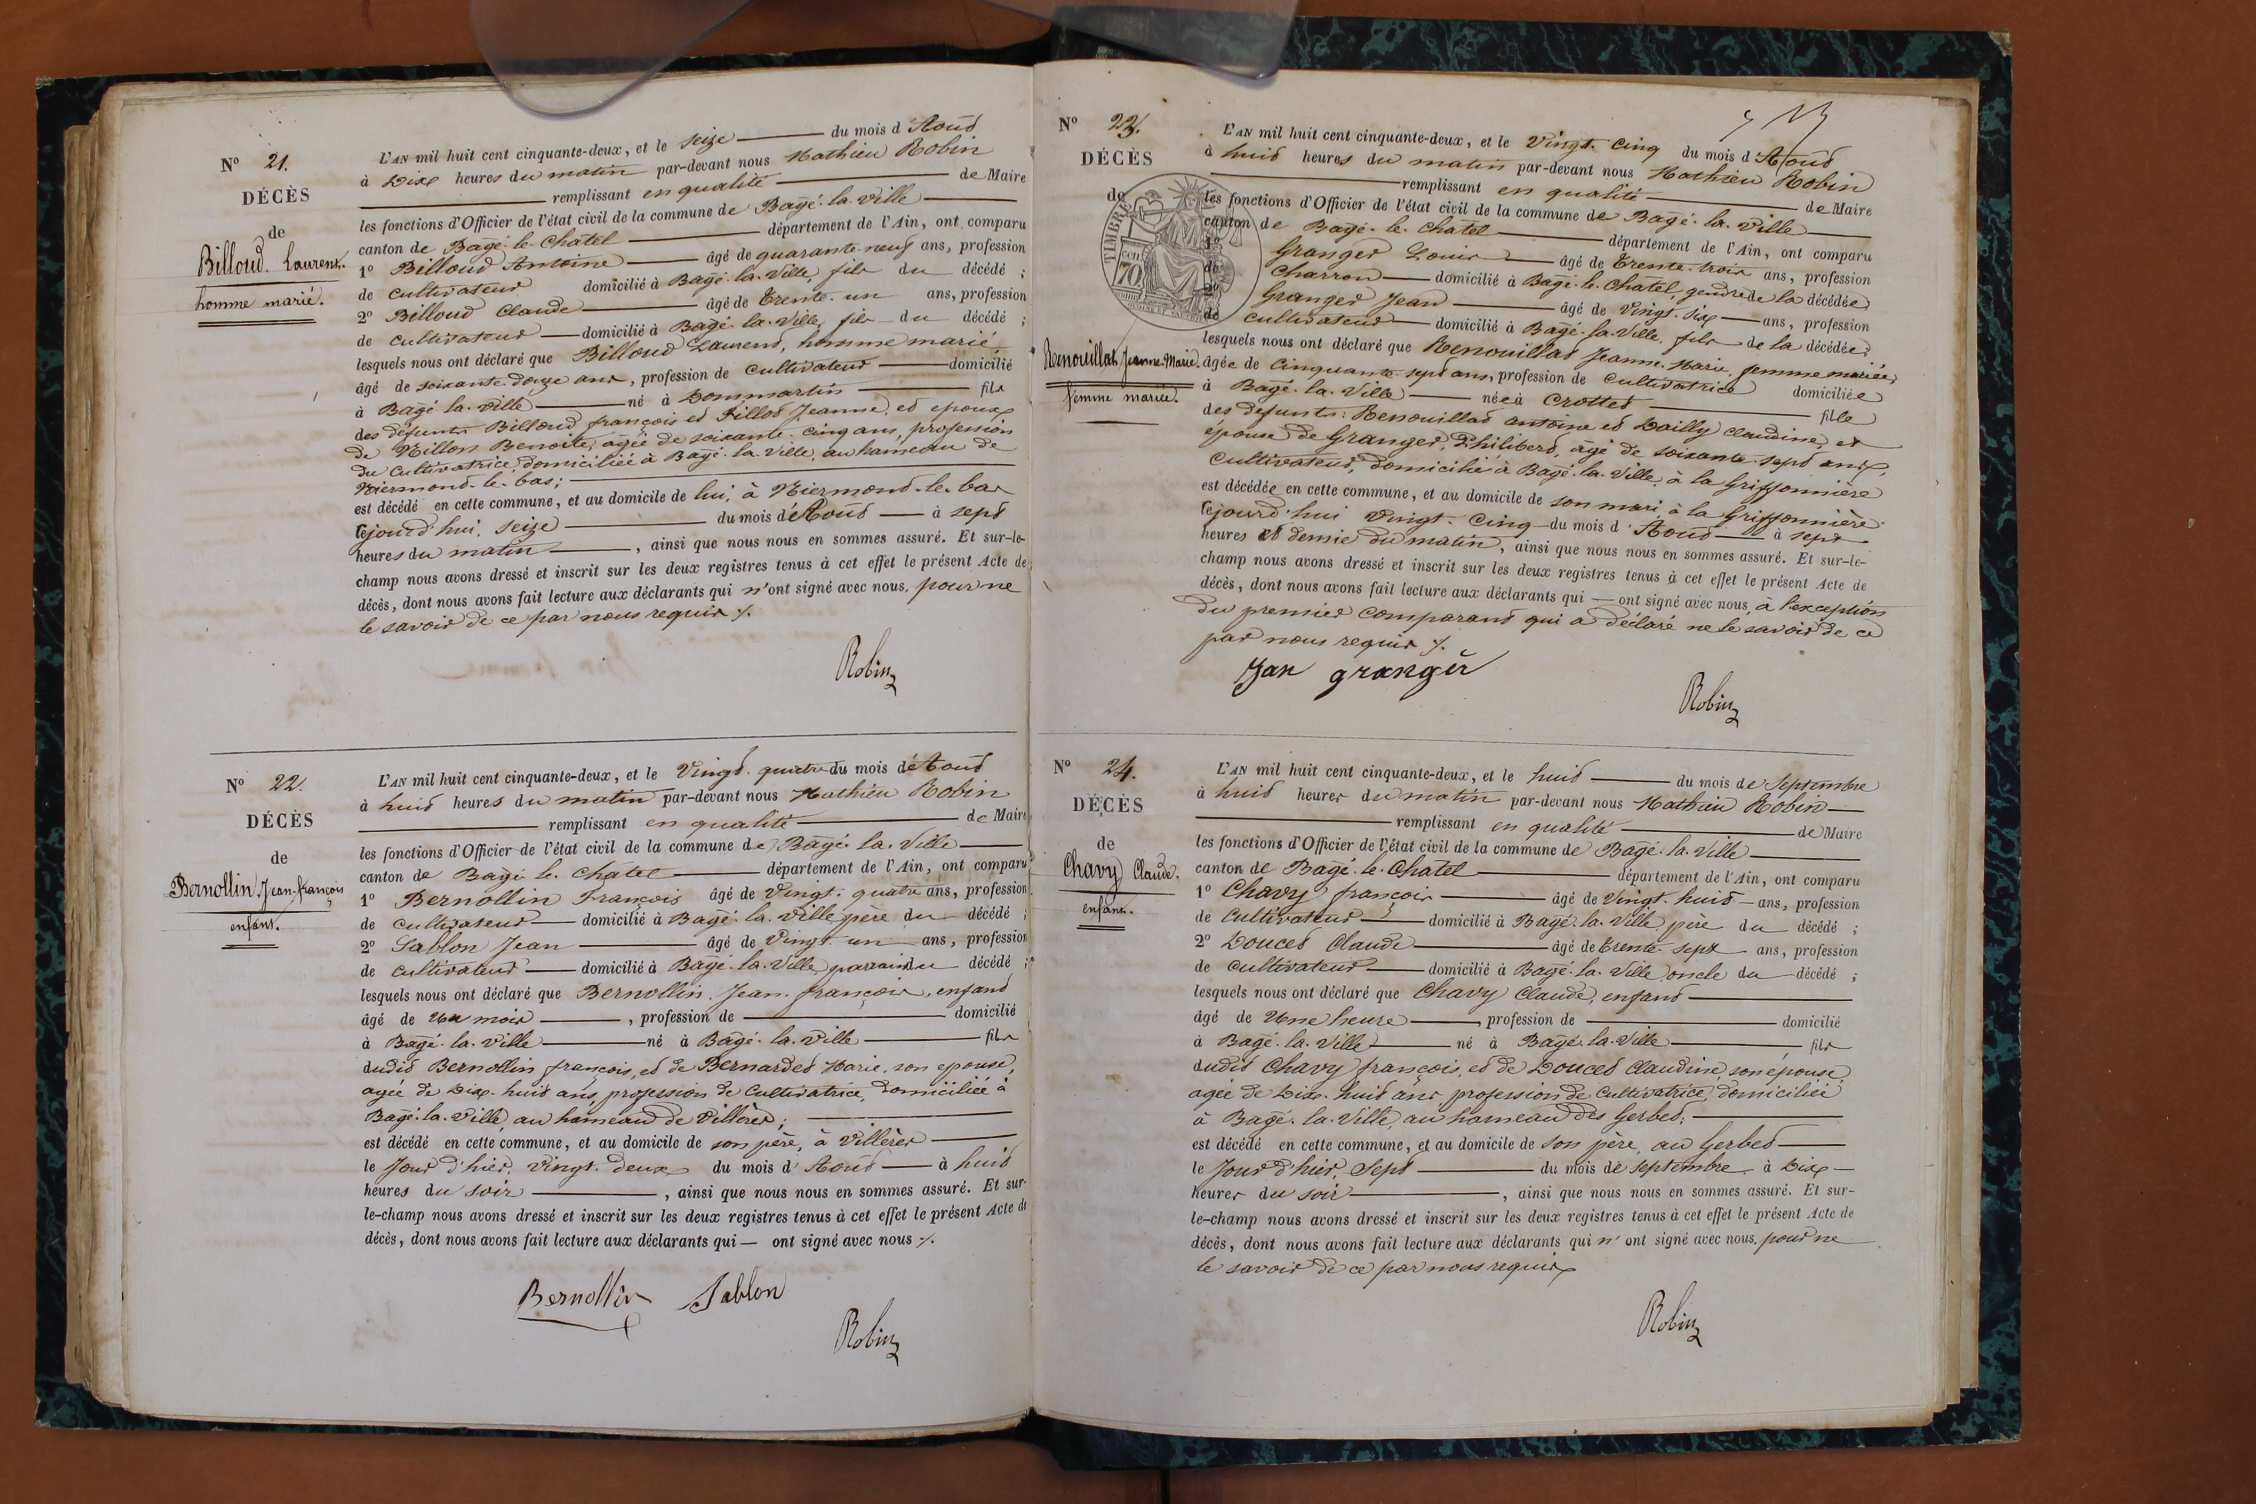 N° 21.
DÉCÈS
de
Billoud Laurent.
homme marié.
L'AN mil huit cent cinquante-deux, et le seize du mois d'Août
à Dix heures du matin par-devant nous Mathieu Robin
remplissant en qualité de Maire
les fonctions d'Officier de l'état civil de la commune de Bagé-la-Ville
canton de Bagé-le-Châtel département de l'Ain, ont comparu
1° Billoud Antoine âgé de quarante-neuf ans, profession
de cultivateur domicilié à Bagé-la-Ville, fils du décédé ;
2° Billoud Claude âgé de Trente-un ans, profession
de cultivateur domicilié à Bagé-la-Ville, fils du décédé ;
lesquels nous ont déclaré que Billoud Laurent, homme marié,
âgé de soixante-douze ans, profession de cultivateur domicilié
à Bagé-la-Ville né à Dommartin fils
des défunts Billoud françois et Fillod Jeanne, et époux
de Nillon Benoite, âgée de soixante-cinq ans, profession
du Cultivatrice, domiciliée à Bagé-la-Ville, au hameau de
Niermond-le-bas;
est décédé en cette commune, et au domicile de lui, à Niermond-le-bas
Cejourd'hui, seize du mois d'Août à sept
heures du matin, ainsi que nous nous en sommes assuré. Et sur-le-
champ nous avons dressé et inscrit sur les deux registres tenus à cet effet le présent Acte de
décès, dont nous avons fait lecture aux déclarants qui n'ont signé avec nous, pour ne
le savoir de ce par nous requis ./.
Robin
N° 22.
DÉCÈS
de
Bernollin, Jean-françois
enfant.
L'AN mil huit cent cinquante-deux, et le Vingt-quatre du mois d'Août
à huit heures du matin par-devant nous Mathieu Robin
remplissant en qualité de Maire
les fonctions d'Officier de l'état civil de la commune de Bagé-la-Ville
canton de Bagé-le-Châtel département de l'Ain, ont comparu
1° Bernollin François âgé de Vingt-quatre ans, profession
de cultivateur domicilié à Bagé-la-Ville père du décédé ;
2° Sablon Jean âgé de Vingt-un ans, profession
de cultivateur domicilié à Bagé-la-Ville, parrain du décédé ;
lesquels nous ont déclaré que Bernollin, Jean-françois, enfant
âgé de Un mois, profession de domicilié
à Bagé-la-Ville né à Bagé-la-Ville fils
dudit Bernollin françois, et de Bernardet Marie, son épouse,
agée de Dix-huit ans, profession de Cultivatrice, domiciliée à
Bagé-la-Ville, au hameau de Villères;
est décédé en cette commune, et au domicile de son père, à Villères
le Jour d'hier, Vingt-deux du mois d'Août à huit
heures du soir, ainsi que nous nous en sommes assuré. Et sur-
le-champ nous avons dressé et inscrit sur les deux registres tenus à cet effet le présent Acte de
décès, dont nous avons fait lecture aux déclarants qui ont signé avec nous ./.
Bernollin Sablon
Robin
N° 23.
DÉCÈS
de
TIMBRE
70
Renouillat Jeanne-Marie.
femme mariée.
L'AN mil huit cent cinquante-deux, et le Vingt-cinq du mois d'Août
à huit heures du matin par-devant nous Mathieu Robin
remplissant en qualité de Maire
les fonctions d'Officier de l'état civil de la commune de Bagé-la-Ville
canton de Bagé-le-Châtel département de l'Ain, ont comparu
1° Granger Louis âgé de Trente-trois ans, profession
de Charron domicilié à Bagé-le-Châtel, gendre de la décédée
2° Granger Jean âgé de Vingt-six ans, profession
de Cultivateur domicilié à Bagé-la-Ville, fils de la décédée;
lesquels nous ont déclaré que Renouillat Jeanne-Marie, femme mariée,
âgée de Cinquante-sept ans, profession de Cultivatrice domiciliée
à Bagé-la-Ville née à Crottet fille
des défunts: Renouillat antoine et Dailly claudine, et
épouse de Granger, Philibert, âgé de soixante-sept ans,
Cultivateur, domicilié à Bagé-la-Ville, à la Griffonnière
est décédée en cette commune, et au domicile de son mari, à la Griffonnière
Cejourd'hui Vingt-Cinq du mois d'Août à sept
heures et demie du matin, ainsi que nous nous en sommes assuré. Et sur-le-
champ nous avons dressé et inscrit sur les deux registres tenus à cet effet le présent Acte de
décès, dont nous avons fait lecture aux déclarants qui ont signé avec nous, à l'exception
du premier comparant qui a déclaré ne le savoir de ce
par nous requis ./.
Jan granger
Robin
N° 24.
DÉCÈS
de
Chavy Claude.
enfant.
L'AN mil huit cent cinquante-deux, et le huit du mois de Septembre
à huit heures du matin par-devant nous Mathieu Robin
remplissant en qualité de Maire
les fonctions d'Officier de l'état civil de la commune de Bagé-la-Ville
canton de Bagé-le-Chatel département de l'Ain, ont comparu
1° Chavy françois âgé de Vingt-huit ans, profession
de Cultivateur domicilié à Bagé-la-Ville père du décédé ;
2° Doucet Claude âgé de Trente-sept ans, profession
de cultivateur domicilié à Bagé-la-Ville oncle du décédé ;
lesquels nous ont déclaré que Chavy Claude, enfant
âgé de Une heure, profession de domicilié
à Bagé-la-Ville né à Bagé-la-Ville fils
dudit Chavy françois, et de Doucet Claudine, son épouse,
agée de Dix-huit ans, profession de Cultivatrice, domiciliée
à Bagé-la-Ville, au hameau des Gerbet;
est décédé en cette commune, et au domicile de son père, au Gerbet
le Jour d'hier, Sept du mois de septembre à Dix
heures du soir, ainsi que nous nous en sommes assuré. Et sur-
le-champ nous avons dressé et inscrit sur les deux registres tenus à cet effet le présent Acte de
décès, dont nous avons fait lecture aux déclarants qui n'ont signé avec nous, pour ne
le savoir de ce par nous requis
Robin